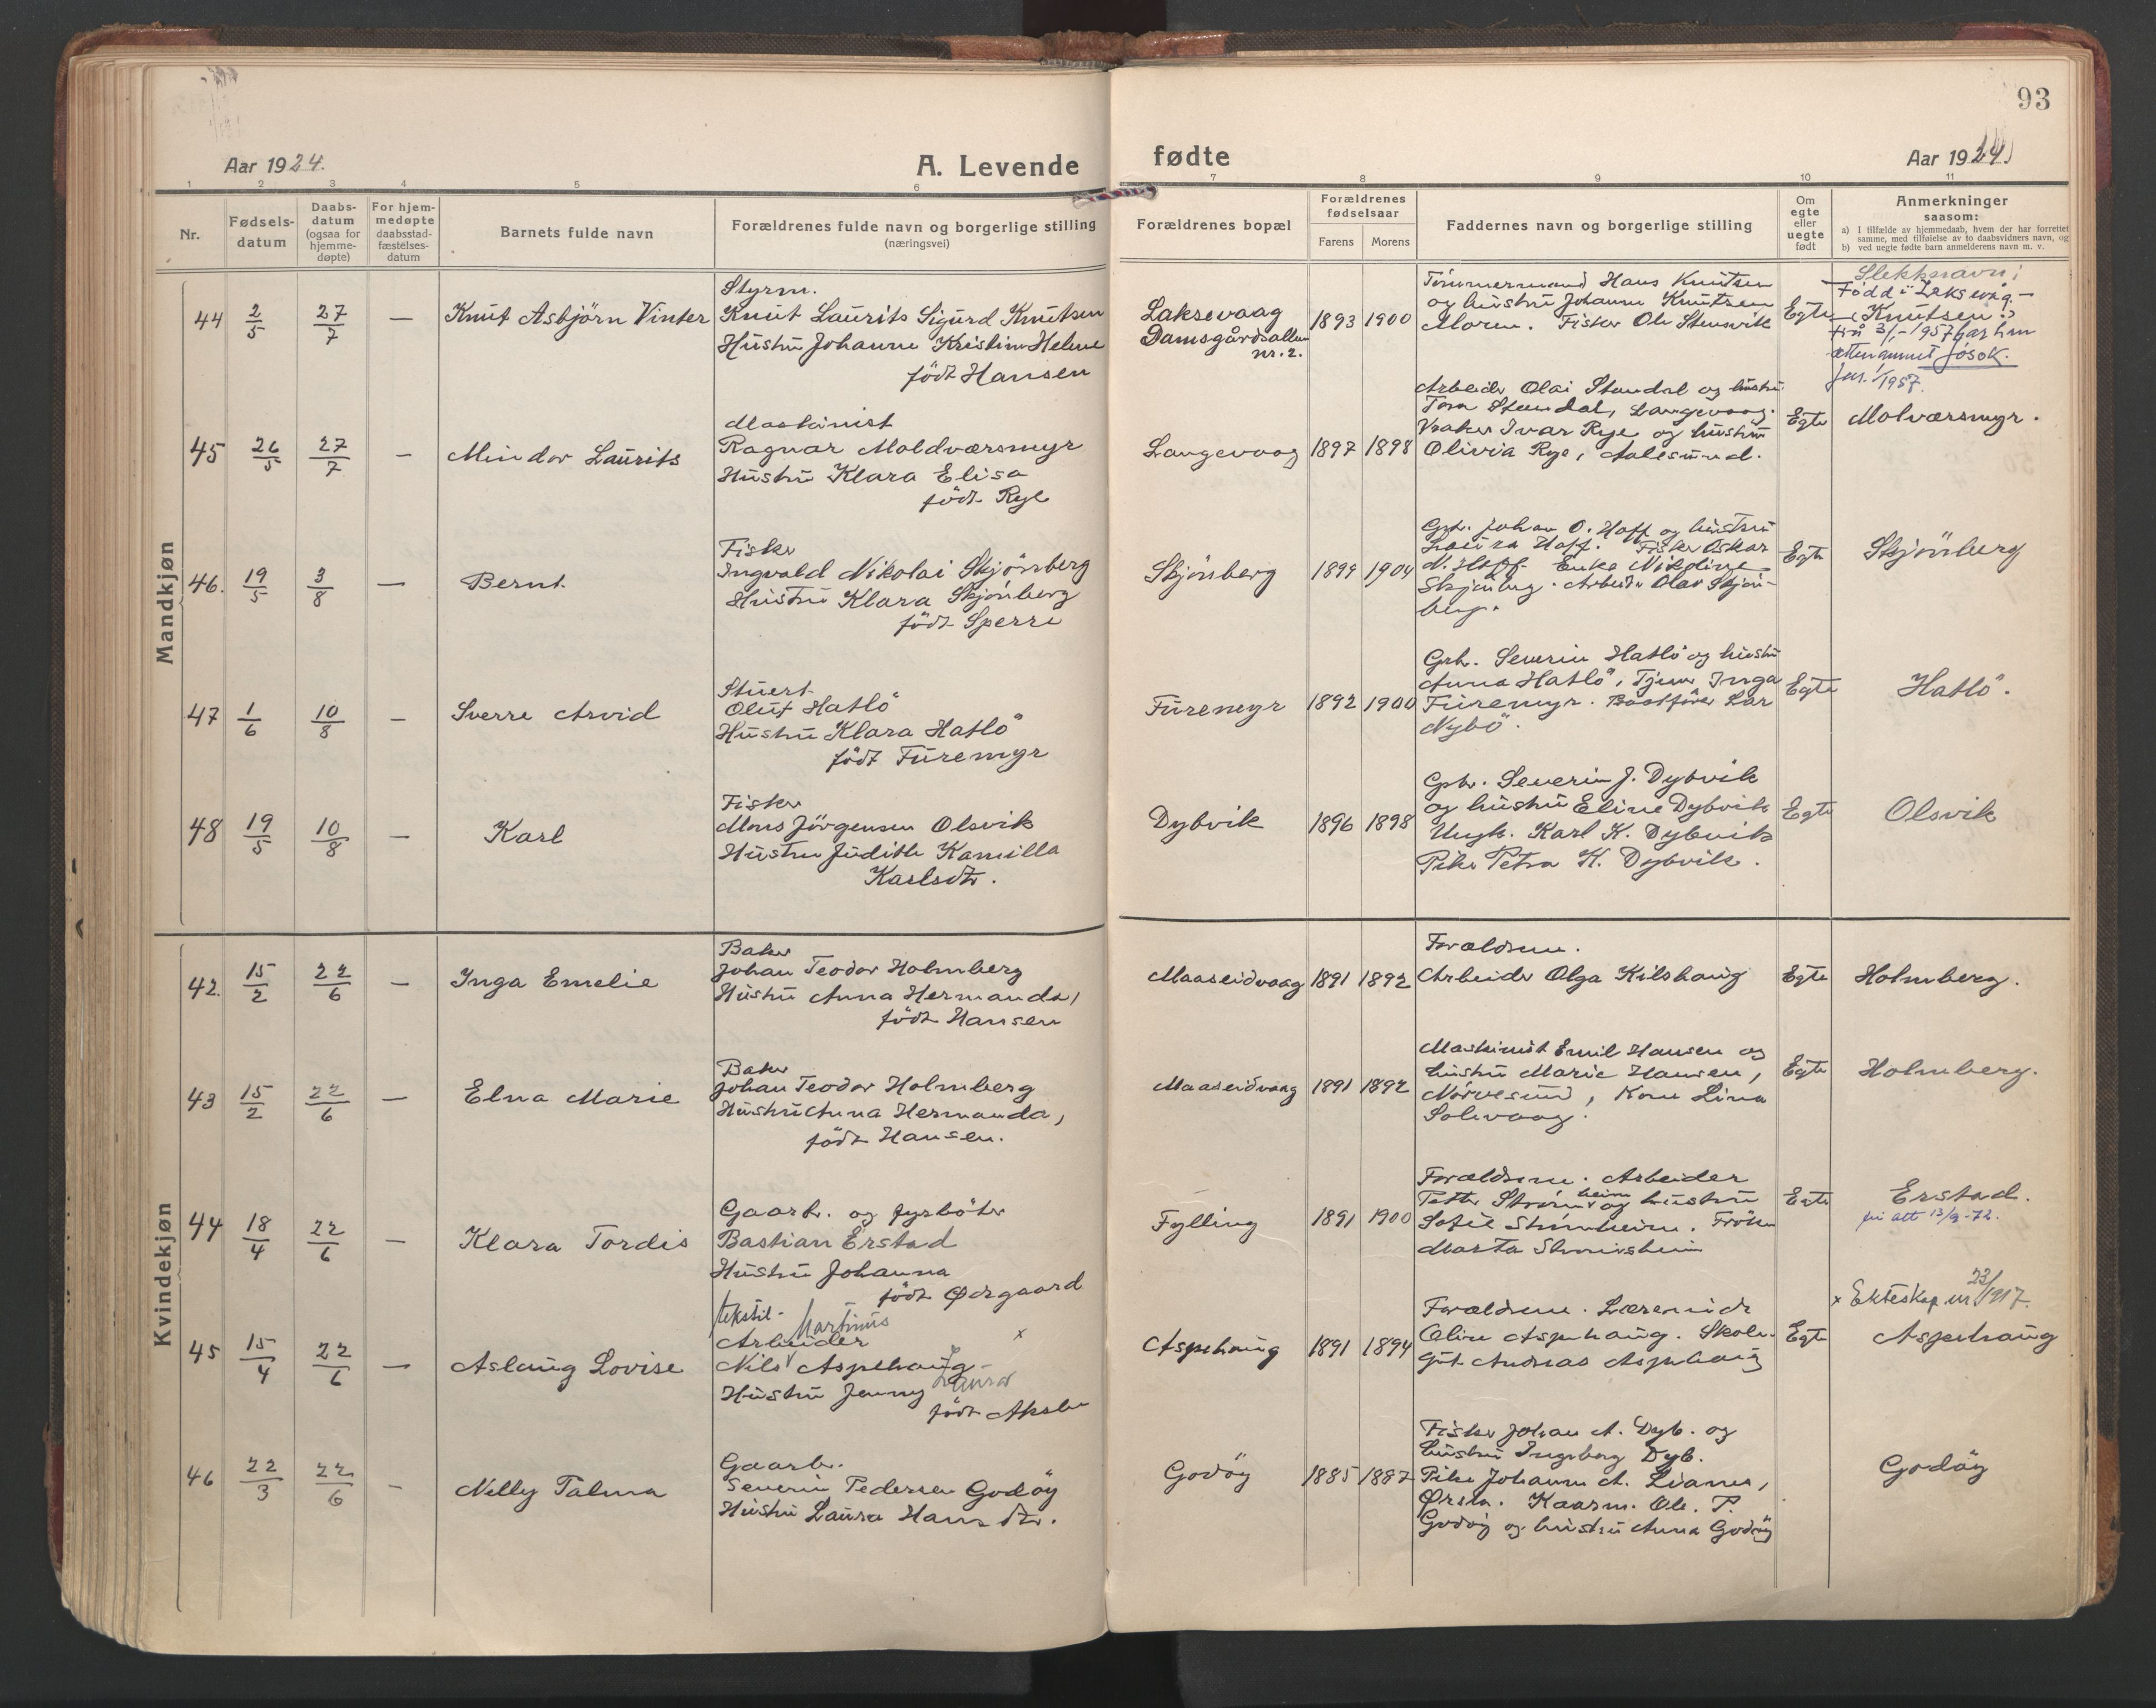 93
Aar 1924.
A. Levende
fødte
Aar 1924
1 2 3 4 5 6
7 8 9 10 11
Nr.
Fødsels-
datum
Daabs-
datum
(ogsaa for
hjemme-
døpte)
For hjem-
medøpte
daabsstad-
fæstelses-
datum
Barnets fulde navn
Forældrenes fulde navn og borgerlige stilling
(næringsvei)
Forældrenes bopæl
Forældrenes
fødselsaar
Farens
Morens
Faddernes navn og borgerlige stilling
Om
egte
eller
uegte
født
Anmerkninger
saasom:
a) I tilfælde av hjemmedaab, hvem der har forrettet
samme, med tilføielse av to daabsvidners navn, og
b) ved uegte fødte barn anmelderens navn m. v.
Mandkjøn
44 2/5 27/7 — Knut Asbjörn Vinter
Styrm.
Knut Laurits Sigurd Knutsen
Hustru Johanne Kristine Helene
född Hansen
Laksevaag
Damsgårdsalleen
nr. 2.
1893 1900
Tömmermand Hans Knutsen
og hustru Johanne Knutsen
Moren. Fisker Ole Stensvik
Egte
Slektsnavn:
Född i Laksevåg
Knutsen
frå 3/1-1957 har han
ættenamnet Jösok.
1957.
45 26/5 27/7 — Mindor Laurits
Maskinist
Ragnar Moldværsmyr
Hustru Klara Elisa
född Rye
Langevaag 1897 1898
Arbeider Olai Standal og hustru
Tora Standal, Langevaag.
Vaaker Ivar Rye og hustru
Olivia Rye, Aalesund.
Egte
Molværsmyr.
46. 19/5 3/8 — Bernt
Fisker
Ingvald Nikolai Skjönberg
Hustru Klara Skjönberg
född Sperre
Skjönberg 1899 1904
Grb. Johan O. Hoff og hustru
Laura Hoff. Fisker Oskar
N. Hoff. Enke Nikoline
Skjönberg. Arbeider Olav Skjön-
berg.
Egte
Skjönberg
47 1/6 10/8 — Sverre Arvid
Stuert
Oluf Hatlö
Hustru Klara Hatlö
född Furemyr
Furemyr 1892 1900
Grb. Severin Hatlö og hustru
Anna Hatlö, Tjener Inga
Furemyr. Baatförer Lar
Nybö.
Egte
Hatlö.
48 19/5 10/8 — Karl
Fisker
Mons Jörgensen Olsvik
Hustru Judith Kamilla
Karlsdtr.
Dybvik 1896 1898
Grb. Severin J. Dybvik
og hustru Eline Dybvik
Ungk. Karl K. Dybvik
Pike Petra K. Dybvik.
Egte
Olsvik
Kvindekjøn
42. 15/2 22/6 — Inga Emelie
Baker
Johan Teodor Holmberg
Hustru Anna Hermanda,
född Hansen
Maaseidvaag 1891 1892
Forældrene.
Arbeider Olga Kilshaug
Egte
Holmberg.
43 15/2 22/6 — Elna Marie
Baker
Johan Teodor Holmberg
Hustru Anna Hermanda,
född Hansen.
Maaseidvaag 1891 1892
Maskinist Emil Hansen og
hustru Marie Hansen,
Nörvesund, Kone Lina
Solevaag.
Egte
Holmberg.
44 18/4 22/6 — Klara Tordis
Gaarb. og fyrböter
Bastian Erstad
Hustru Johanna
född Ødegaard
Fylling 1891 1900
Forældrene. Arbeider
Petter Strömsheim og hustru
Sofie Strömsheim. Fröken
Marta Strömsheim
Egte
Erstad.
fri att 13/9-72.
45 15/4 22/6 — Aslaug Lovise
tekstil-
Arbeider Martinus
Nils Aspehaug x
Hustru Jenny Laura
född Aksla
Aspehaug 1891 1894
Forældrene. Læremidr
Oline Aspehaug. Skole-
gut Andreas Aspehaug
Egte
x Ekteskap nr 23/1917.
Aspehaug
46 22/3 22/6 - Nelly Palma
Gaarb.
Severin Pedersen Godöy
Hustru Laura Hansdtr.
Godöy 1885 1887
Fisker Johan A. Dyb. og
hustru Ingeborg Dyb.
Pike Johanne A. Lianes,
Ørsta. Kaarm. Ole. P.
Godöy og hustru Anna Godöy
Godöy